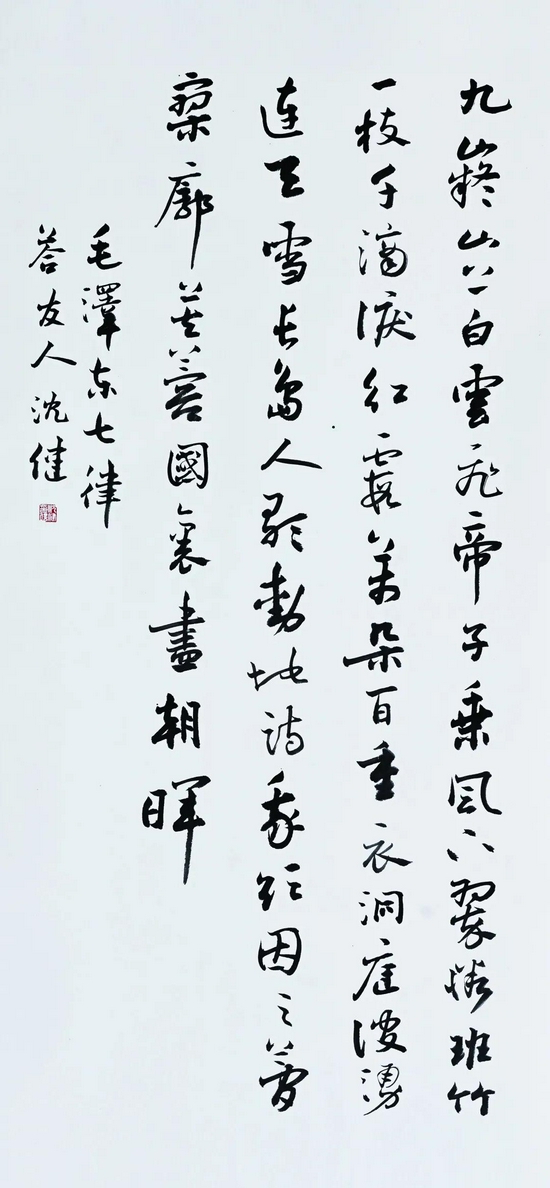 九嶷山上白雲飛帝子乘風下翠微班竹
一枝千滴淚紅霞萬朵百重衣洞庭波湧
連天雪長島人歌動地詩我欲因之夢
寥廓芙蓉國裏盡朝暉
毛澤東七律
答友人沈健